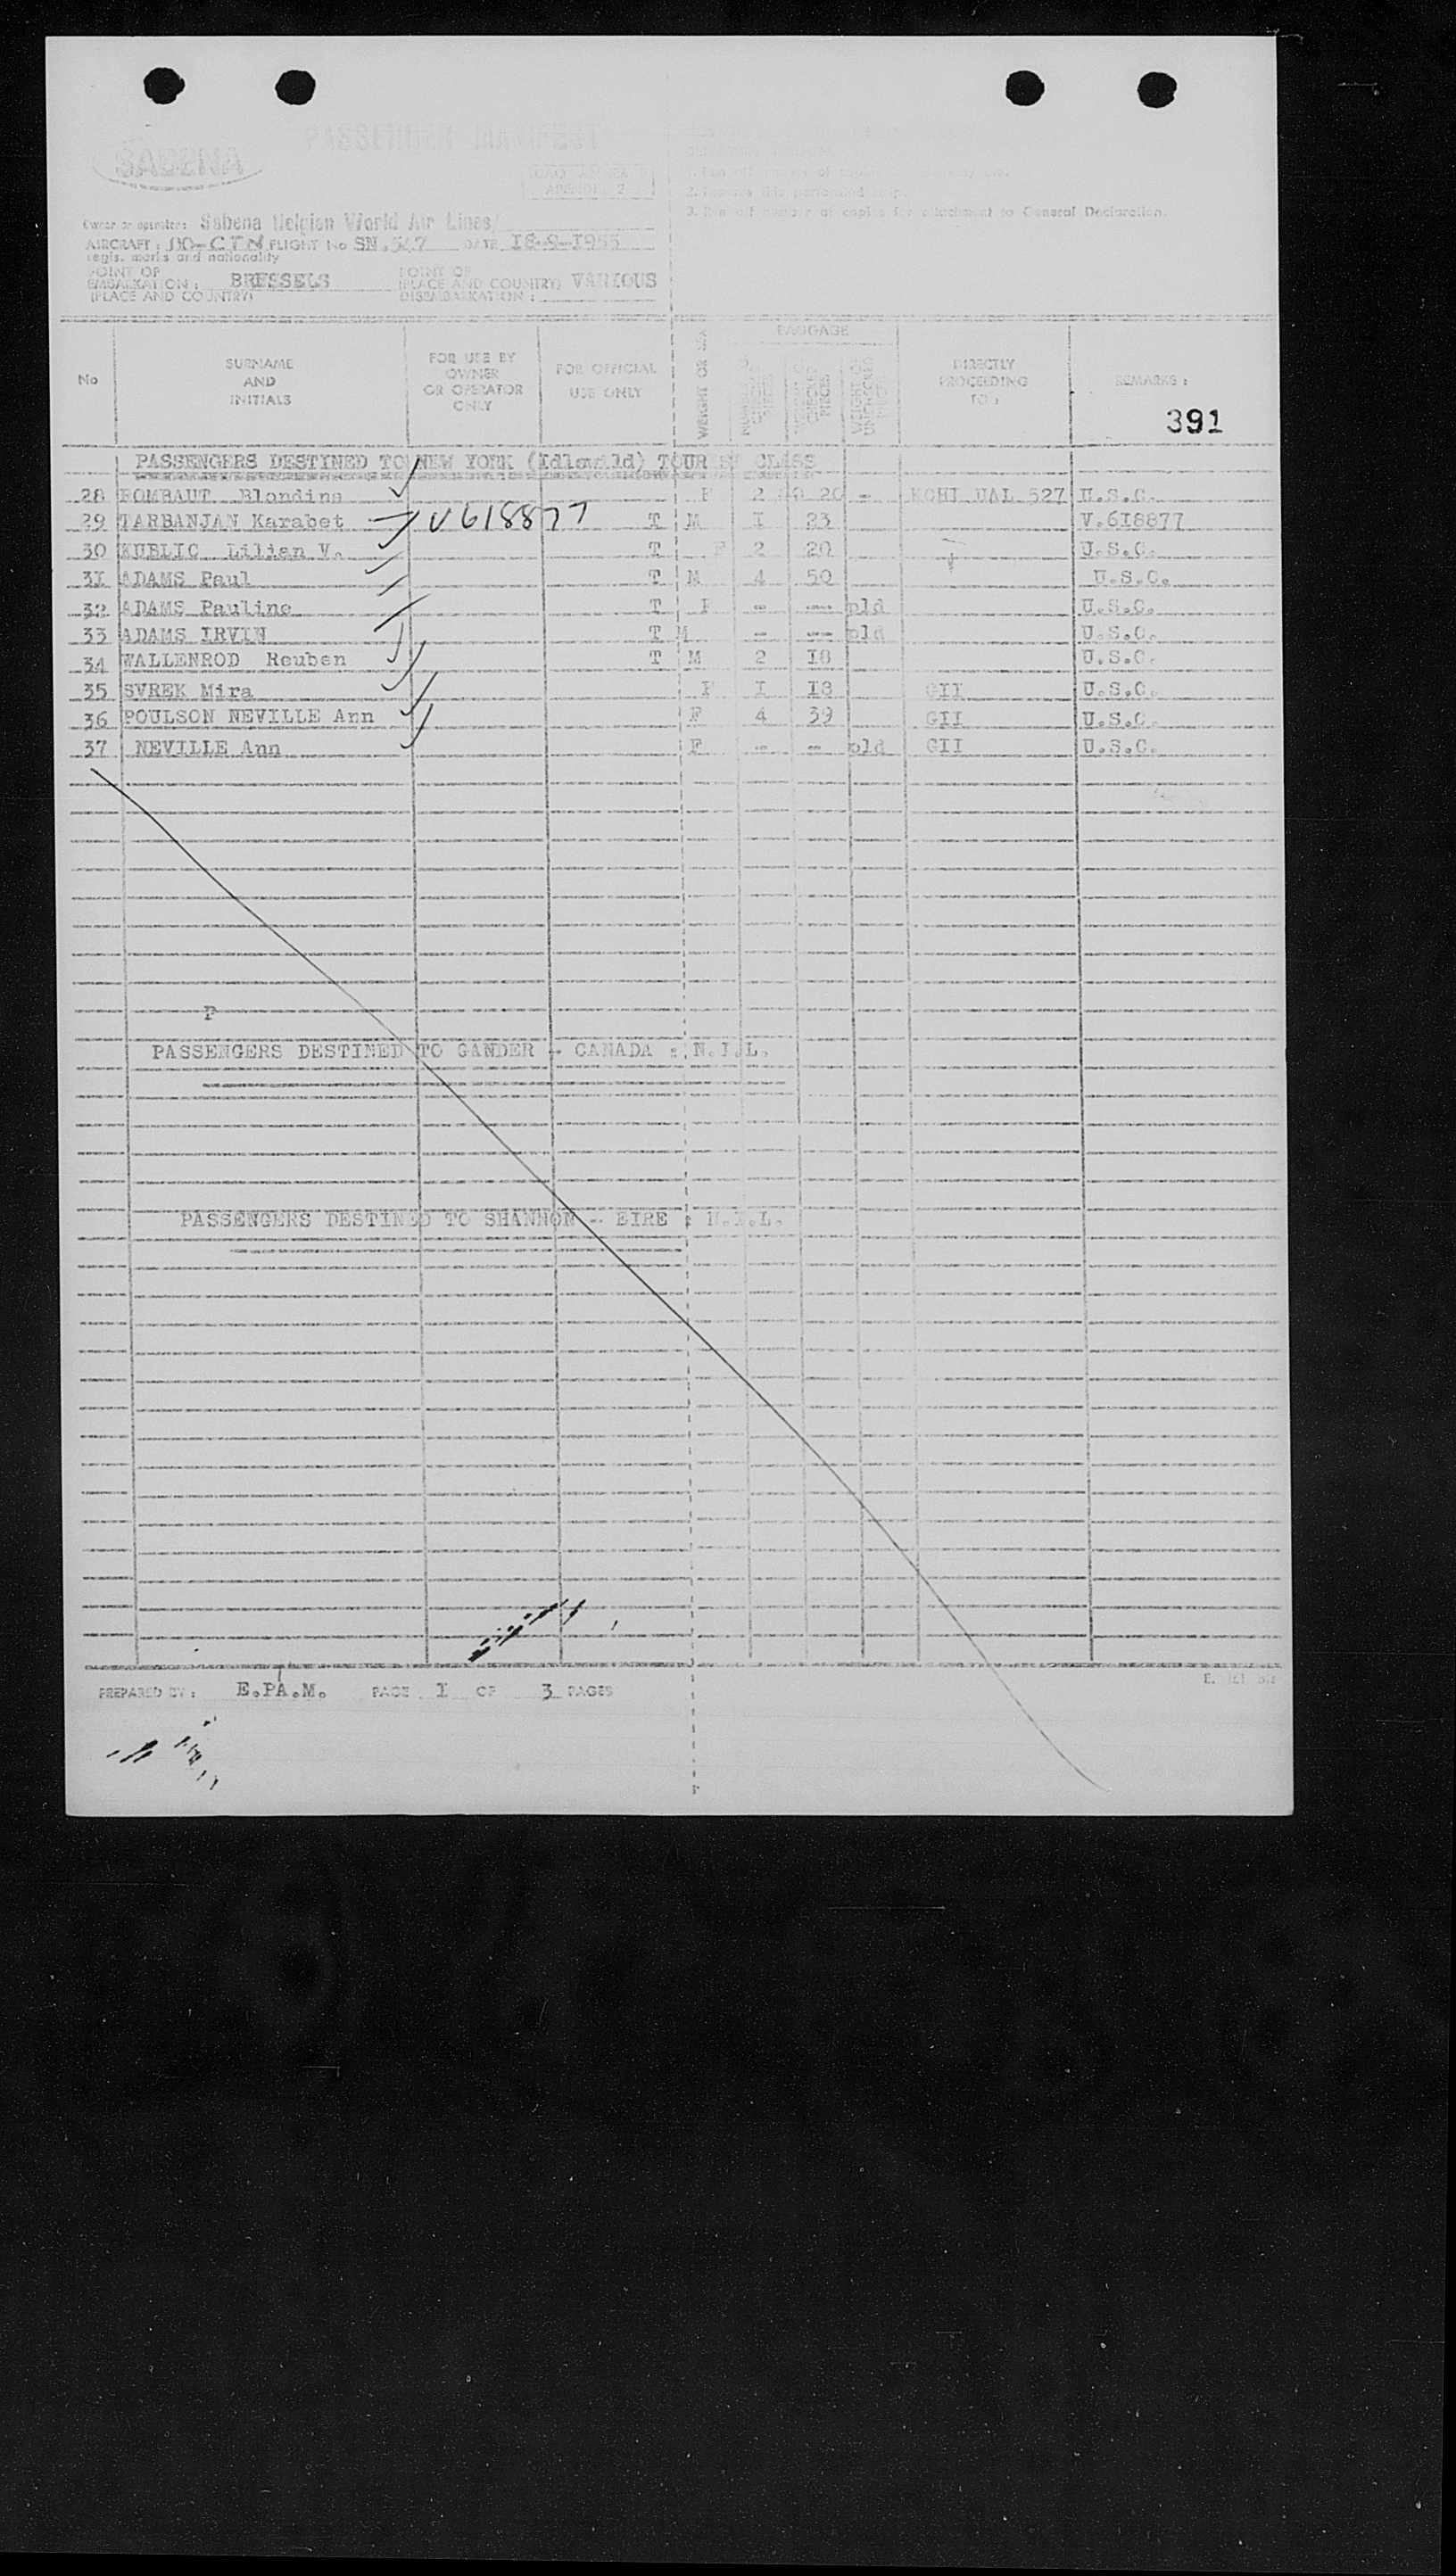 SABENA
PASSENGER MANIFEST
1. Run off
2. Remove this perforated strip.
3. Run off number of copies for attachment to General Declaration.
Owner or operator: Sabena Belgian World Air Lines/
AIRCRAFT: OO-CTN FLIGHT No SN.547 DATE 18-9-1955
regis. marks and nationality
POINT OF EMBARKATION: BRUSSELS
(PLACE AND COUNTRY)
POINT OF (PLACE AND COUNTRY) VARIOUS
DISEMBARKATION:
No
SURNAME AND INITIALS
FOR USE BY OWNER OR OPERATOR ONLY
FOR OFFICIAL USE ONLY
WEIGHT OR SEX
BAGGAGE
CHECKED PIECES
DIRECTLY PROCEEDING TO:
REMARKS:
391
PASSENGERS DESTINED TO NEW YORK (Idlewild) TOURIST CLASS
28 ROMBAUT Blondina F 2 20 - UAL 527 U.S.C.
29 TARBANJAN Karabet V618877 T M I 23 V.6I8877
30 KUBLIC Lilian V. T F 2 20 U.S.C.
3I ADAMS Paul T M 4 50 U.S.C.
32 ADAMS Pauline T F - -- pld U.S.C.
33 ADAMS IRVIN T M - -- pld U.S.C.
34 WALLENROD Reuben T M 2 I8 U.S.C.
35 SVREK Mira F I I8 GII U.S.C.
36 POULSON NEVILLE Ann F 4 39 GII U.S.C.
37 NEVILLE Ann F - - pld GII U.S.C.
P
PASSENGERS DESTINED TO GANDER - CANADA : N.I.L.
PASSENGERS DESTINED TO SHANNON - EIRE : N.I.L.
PREPARED BY: E.PA.M. PAGE I OF 3 PAGES